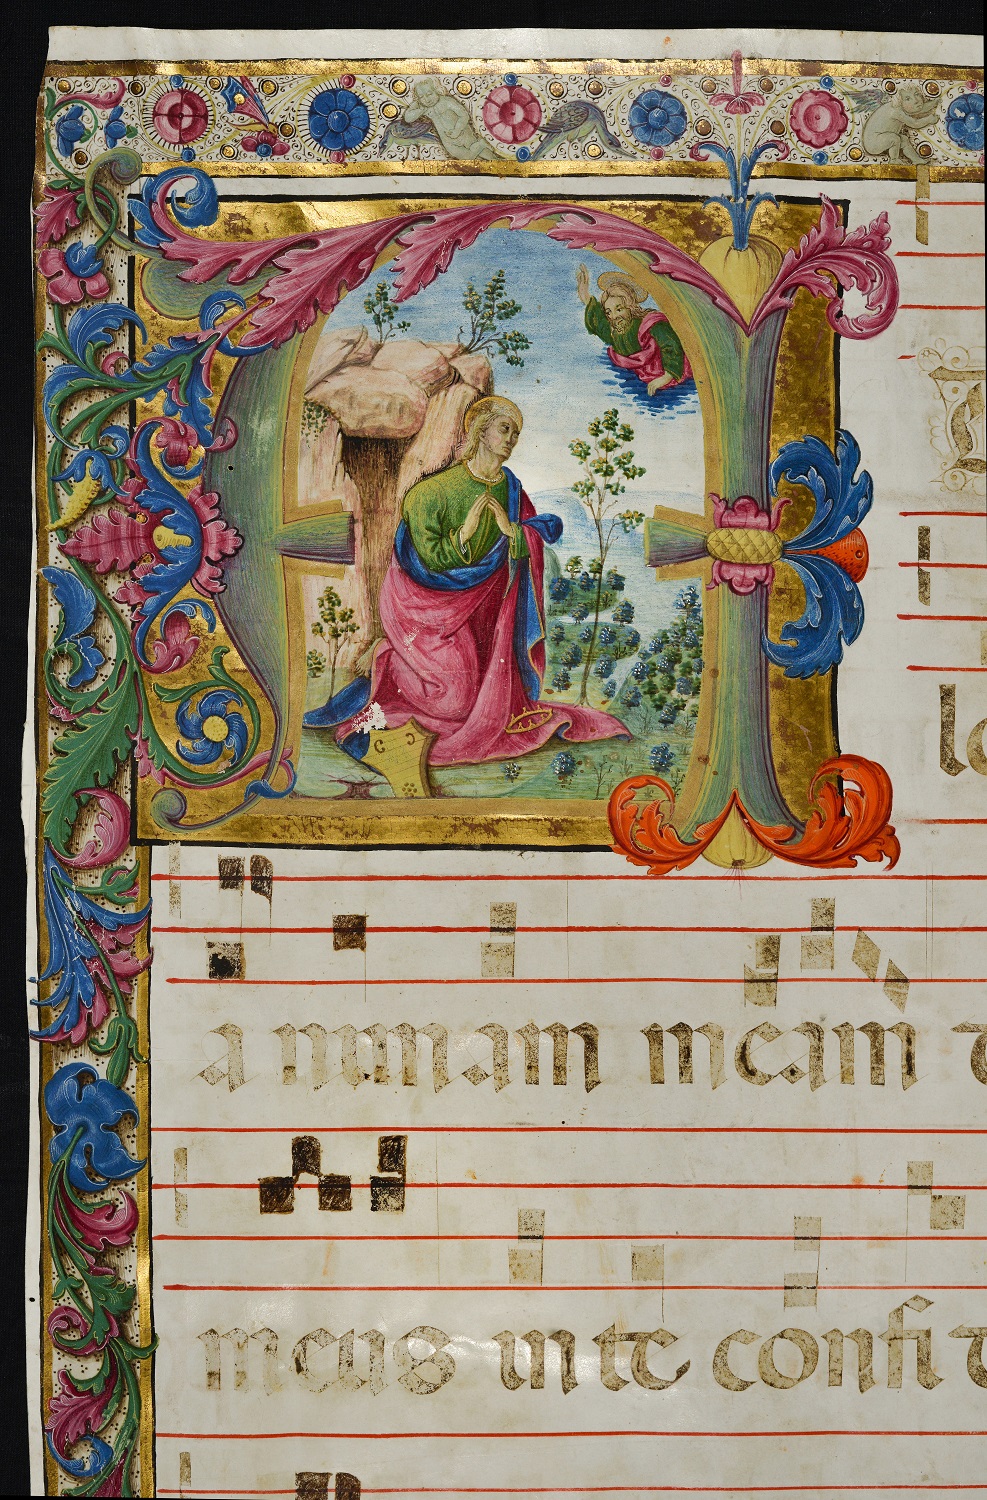 A
le
a nimam meam d
meus in te confi d